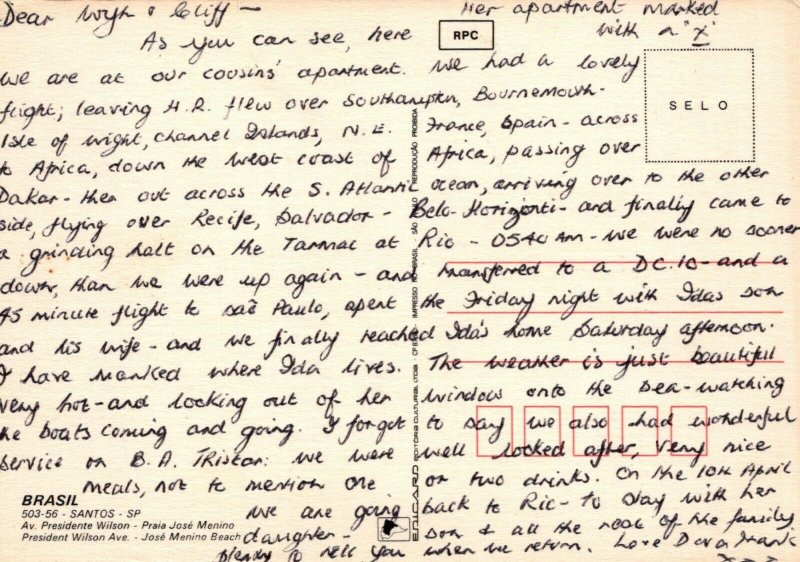 Dear Wyn & Cliff – Her apartment marked
with a "x"
As you can see, here
RPC
we are at our cousins' apartment. We had a lovely
flight; leaving H.R. flew over Southampton, Bournemouth-
Isle of wight, channel Islands, N.E. France, Spain - across
to Africa, down the West coast of Africa, passing over
Dakar - then out across the S. Atlantic ocean, arriving over to the other
side, flying over Recife, Salvador - Belo-Horizonti - and finally came to
a grinding halt on the Tarmac at Rio - 0540 Am - we were no sooner
down, than we were up again - and transferred to a DC.10 - and a
45 minute flight to são Paulo, spent the Friday night with Idas son
and his wife - and we finally reached Ida's home Saturday afternoon.
I have marked where Ida lives. The weather is just beautiful
very hot - and looking out of her windows onto the sea - watching
the boats coming and going. I forgot to say we also had wonderful
service on B.A. Tristar: we were well looked after, very nice
meals, not to mention one or two drinks. On the 10th April
we are going back to Rio - to stay with her
daughter - son & all the rest of the family
plenty to tell you when we return. Love
SELO
BRASIL
503-56 - SANTOS - SP
Av. Presidente Wilson - Praia José Menino
President Wilson Ave. - José Menino Beach
EDICARD EDITORA CULTURAL LTDA
IMPRESSO NO BRASIL - SÃO PAULO - REPRODUÇÃO PROIBIDA